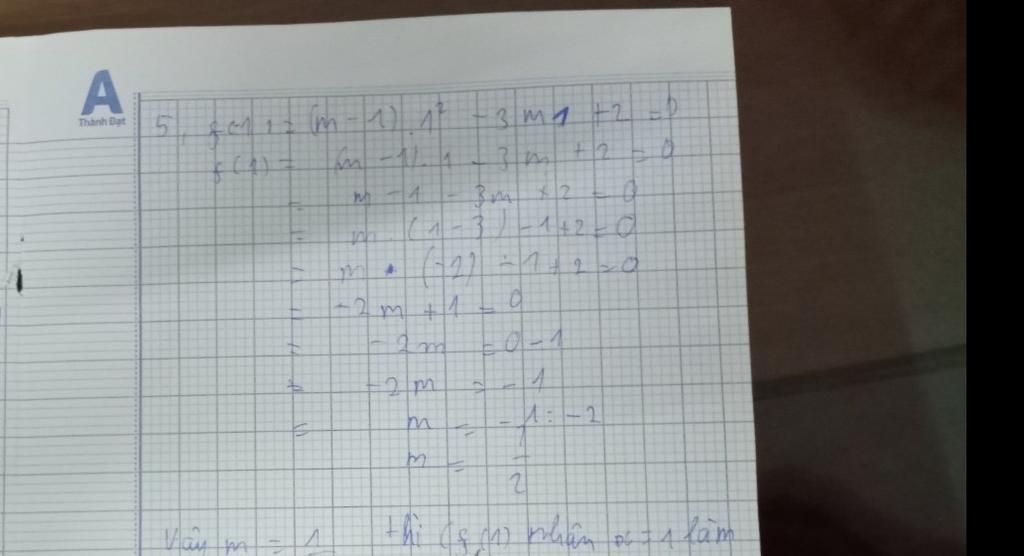 A
Thành Đạt
5, f(1) = (m - 1) . 1² - 3 m 1 + 2 = 0
f(1) = (m - 1) . 1 - 3 m + 2 = 0
= m - 1 - 3m + 2 = 0
= m . (1 - 3) - 1 + 2 = 0
= m . (-2) - 1 + 2 = 0
= -2 m + 1 = 0
= -2m = 0 - 1
= -2 m = - 1
= m = - 1 : -2
m = 1/2
Vậy m = 1 thì (f(1) nhận x = 1 làm